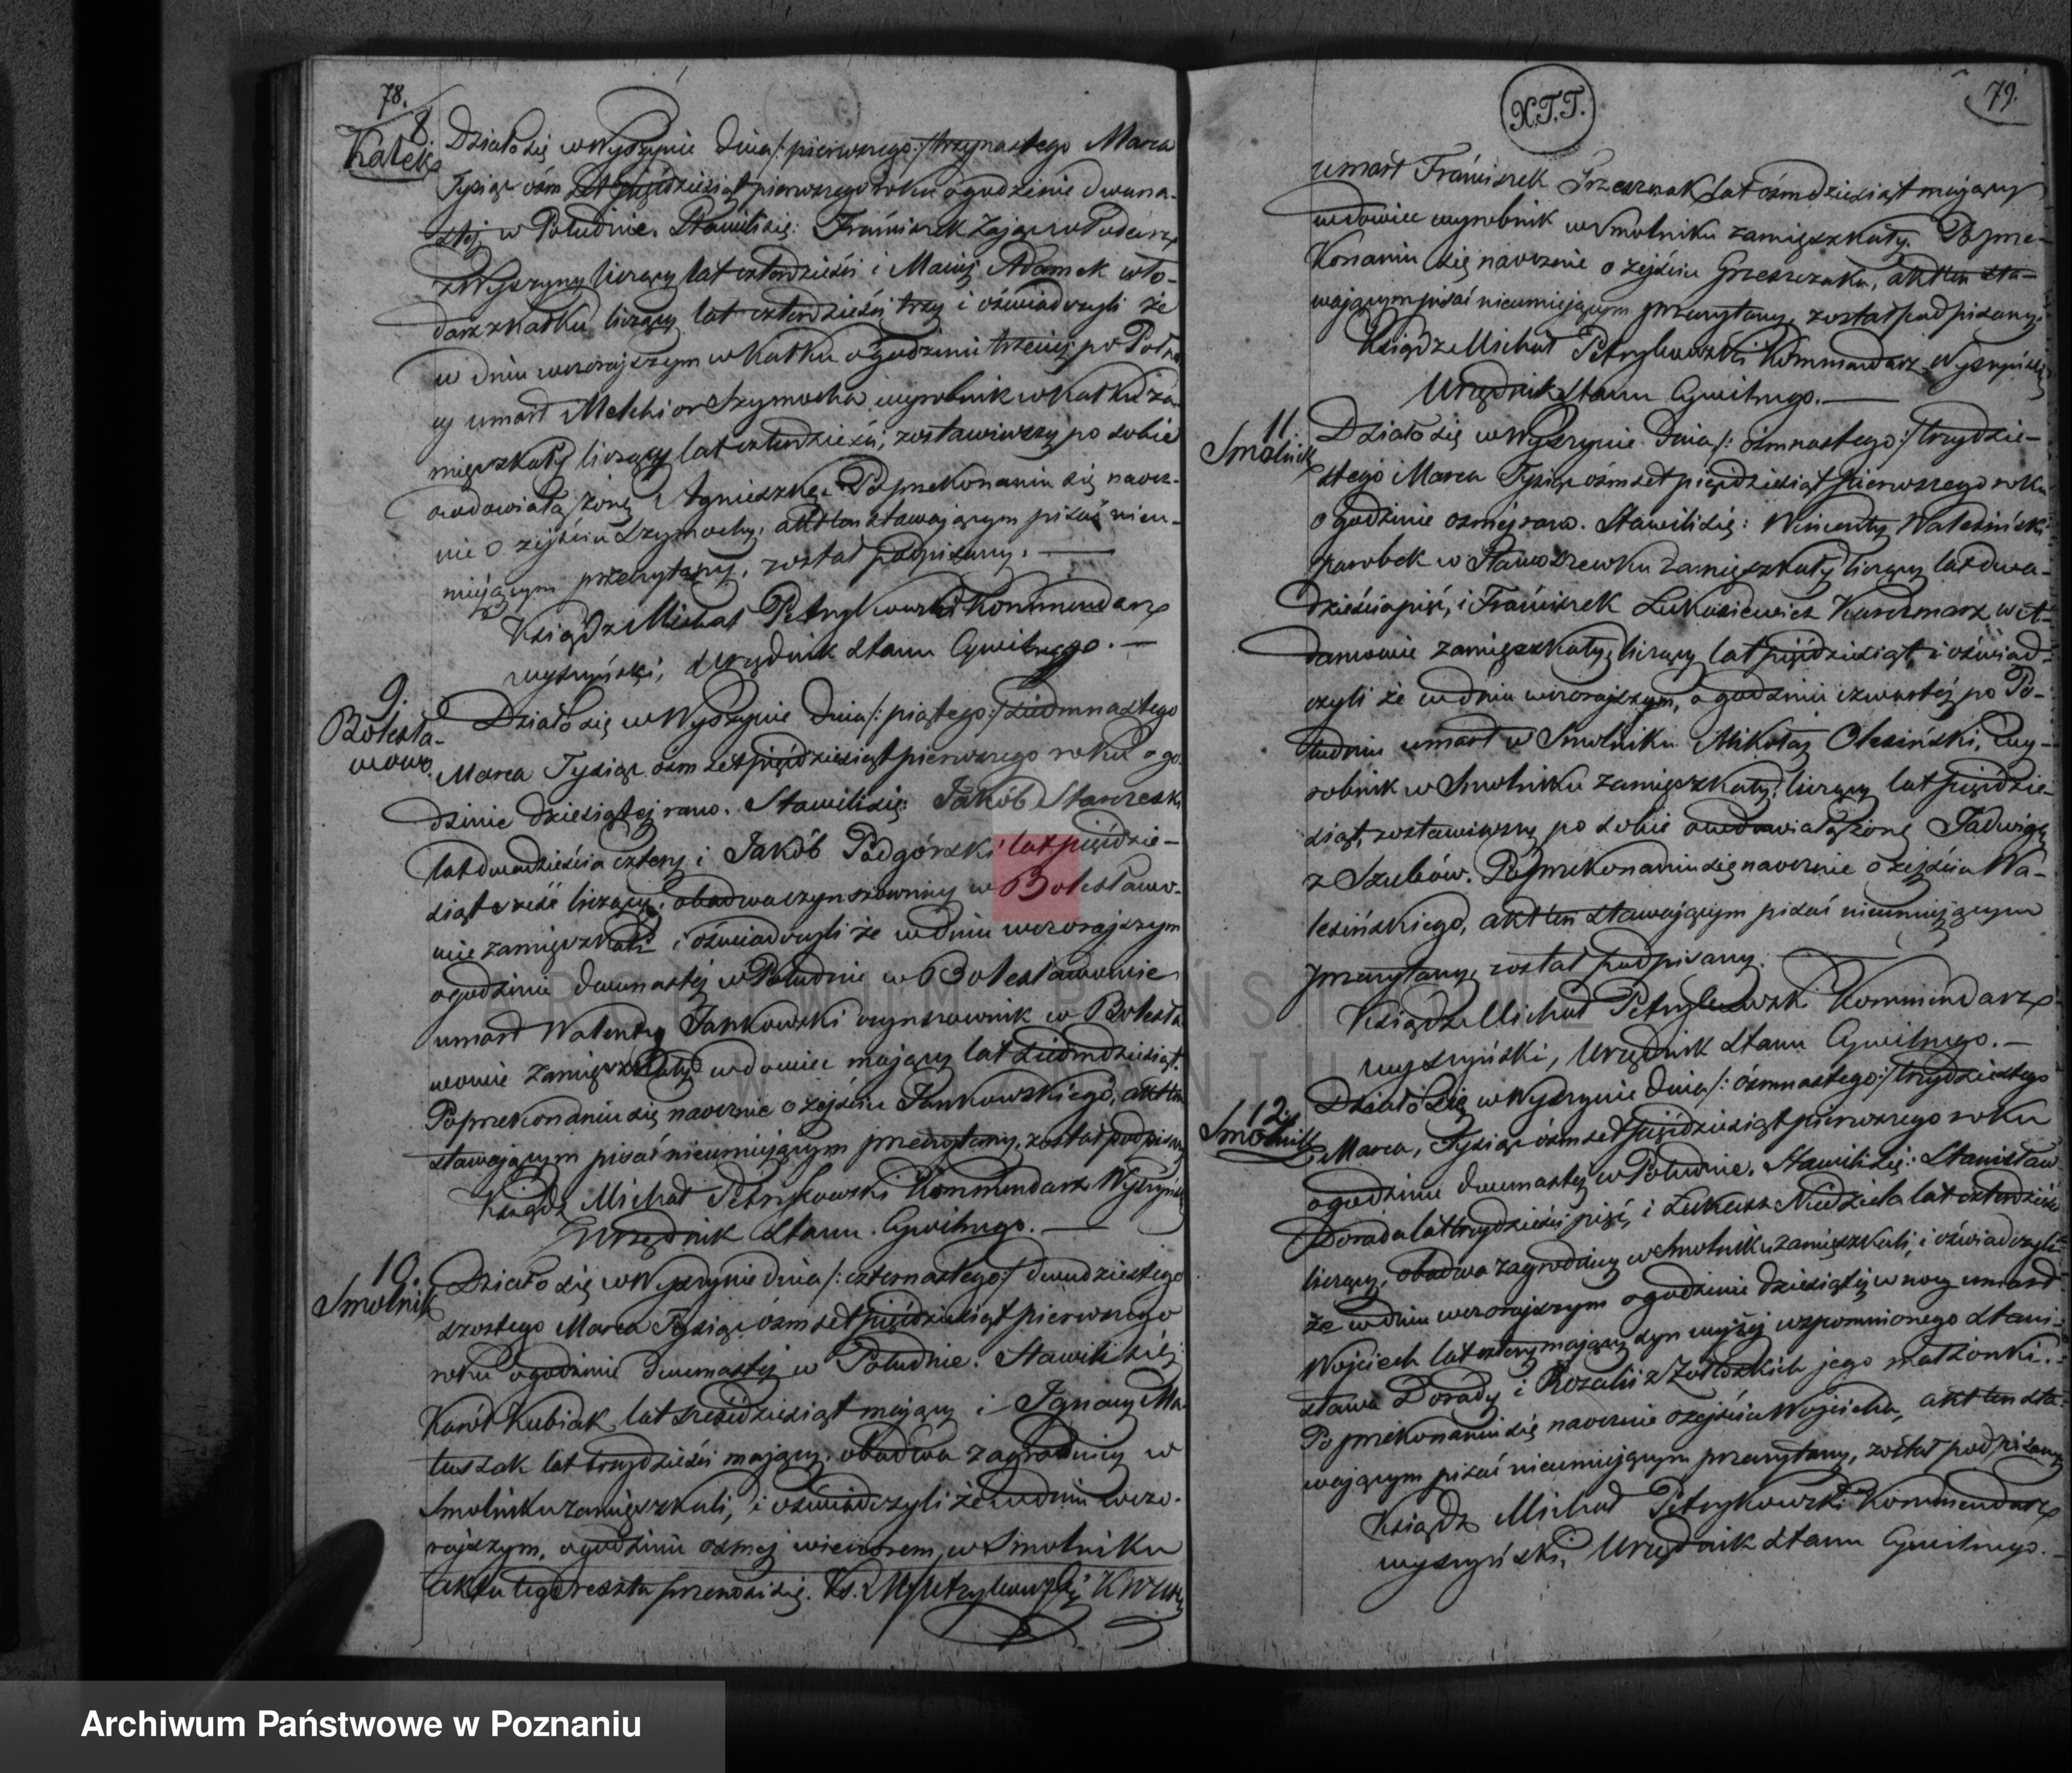 78.
8.
Kałek
Działo się w Wyszynie dnia /: pierwszego :/ trzynastego Marca
Tysiąc ośm set pięćdziesiąt pierwszego roku o godzinie dwuna-
stej w Południe. Stawili się: Franciszek Zając włodarz
z Wyszyny liczący lat czterdzieści i Maciej Adamek wło-
darz z Kałku liczący lat czterdzieści trzy i oświadczyli że
w dniu wczorajszym w Kałku o godzinie trzeciej po Połu
umarł Melchior Szymocha wyrobnik w Kałku za-
mieszkały liczący lat czterdzieści, zostawiwszy po sobie
owdowiałą żonę Agnieszkę. Po przekonaniu się naocz-
nie o zejściu Szymochy, akt ten stawającym pisać nieu-
miejącym przeczytany, został podpisany.
Ksiądz Michał Petrykowski Kommendarz
wyszyński, Urzędnik Stanu Cywilnego.
9.
Bolesła-
wowo.
Działo się w Wyszynie dnia /: piątego :/ siedmnastego
Marca Tysiąc ośm set pięćdziesiąt pierwszego roku o go
dzinie dziesiątej rano. Stawili się: Jakób
lat dwadzieścia cztery i Jakób Podgórski lat pięćdzie-
siąt sześć liczący, obadwa czynszownicy w Bolesławo-
wie zamieszkali i oświadczyli że w dniu wczorajszym
o godzinie dwunastej w Południe w Bolesławowie
umarł Walenty Jankowski czynszownik w Bolesła
wowie zamieszkały wdowiec mający lat siedmdziesiąt.
Po przekonaniu się naocznie o zejściu Jankowskiego, akt ten
stawającym pisać nieumiejącym przeczytany, został podpisany
Ksiądz Michał Petrykowski Kommendarz Wyszyński
Urzędnik Stanu Cywilnego.
10.
Smolnik
Działo się w Wyszynie dnia /: czternastego :/ dwudziestego
szóstego Marca Tysiąc ośm set pięćdziesiąt pierwszego
roku o godzinie dwunastej w Południe. Stawili się:
Karól Kubiak lat sześćdziesiąt mający i Ignacy Ma-
tuszak lat trzydzieści mający, obadwa zagrodnicy w
Smolniku zamieszkali, i oświadczyli że w dniu wczo-
rajszym, o godzinie osmej wieczorem, w Smolniku
aktu tego reszta przenosi się. Ks. M. Petrykowski
79.
X.T.T.
umarł Franciszek Grzeszczak lat ośmdziesiąt mający
wdowiec wyrobnik w Smolniku zamieszkały. Po prze-
konaniu się naocznie o zejściu Grzeszczaka, akt ten sta-
wającym pisać nieumiejącym przeczytany, został podpisany.
Ksiądz Michał Petrykowski Kommendarz Wyszyński
Urzędnik Stanu Cywilnego.
11.
Smolnik
Działo się w Wyszynie dnia /: ośmnastego :/ trzydzie-
stego Marca Tysiąc ośm set pięćdziesiąt pierwszego roku
o godzinie osmej rano. Stawili się: Wincenty Walesiński
parobek w Stawoszewku zamieszkały liczący lat dwa-
dzieścia pięć, i Franciszek Łukasiewicz Karczmarz w A-
damowie zamieszkały, liczący lat pięćdziesiąt, i oświad-
czyli że w dniu wczorajszym, o godzinie czwartej po Po-
łudniu umarł w Smolniku Mikołaj Olesiński, wy-
robnik w Smolniku zamieszkały, liczący lat pięćdzie-
siąt, zostawiwszy po sobie owdowiałą żonę Jadwigę
z Szubów. Po przekonaniu się naocznie o zejściu Wa-
lesińskiego, akt ten stawającym pisać nieumiejącym
przeczytany, został podpisany.
Ksiądz Michał Petrykowski Kommendarz
wyszyński, Urzędnik Stanu Cywilnego.
12.
Smolnik
Działo się w Wyszynie dnia /: ośmnastego :/ trzydziestego
Marca, Tysiąc ośm set pięćdziesiąt pierwszego roku
o godzinie dwunastej w Południe. Stawili się: Stanisław
Dorada lat trzydzieści pięć, i Łukasz Niedziela lat czterdzieści
liczący, obadwa zagrodnicy w Smolniku zamieszkali, i oświadczyli
że w dniu wczorajszym o godzinie dziesiątej w nocy umarł
Wojciech lat cztery mający syn wyżej wspomnionego Stani-
sława Dorady i Rozalii z jego małżonki.
Po przekonaniu się naocznie o zejściu Wojciecha, akt ten sta-
wającym pisać nieumiejącym przeczytany, został podpisany
Ksiądz Michał Petrykowski Kommendarz
wyszyński, Urzędnik Stanu Cywilnego.
ARCHIWUM PAŃSTWOWE
W POZNANIU
Archiwum Państwowe w Poznaniu